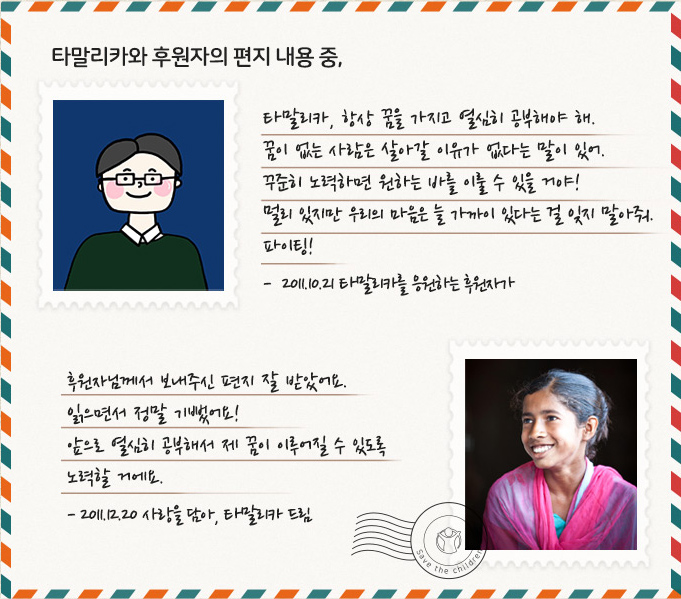 타말리카와 후원자의 편지 내용 중,
타말리카, 항상 꿈을 가지고 열심히 공부해야 해.
꿈이 없는 사람은 살아갈 이유가 없다는 말이 있어.
꾸준히 노력하면 원하는 바를 이룰 수 있을 거야!
멀리 있지만 우리의 마음은 늘 가까이 있다는 걸 잊지 말아줘.
파이팅!
- 2011.10.21 타말리카를 응원하는 후원자가
후원자님께서 보내주신 편지 잘 받았어요.
읽으면서 정말 기뻤어요!
앞으로 열심히 공부해서 제 꿈이 이루어질 수 있도록
노력할 거에요.
- 2011.12.20 사랑을 담아, 타말리카 드림
Save the children